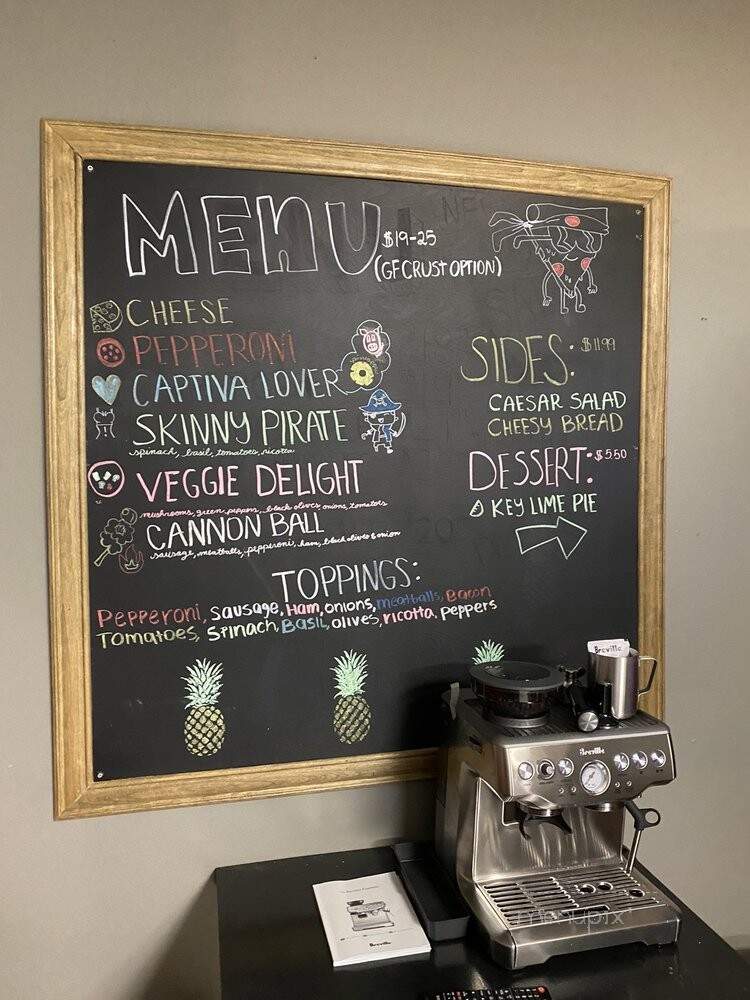 MENU $19-25
(GF CRUST OPTION)
CHEESE
PEPPERONI
CAPTIVA LOVER
SKINNY PIRATE
spinach, basil, tomatoes, ricotta
VEGGIE DELIGHT
mushrooms, green peppers, black olives, onions, tomatoes
CANNON BALL
sausage, meatballs, pepperoni, ham, black olives & onion
SIDES: $11.99
CAESAR SALAD
CHEESY BREAD
DESSERT: $5.50
KEY LIME PIE
TOPPINGS:
Pepperoni, sausage, Ham, onions, meatballs, Bacon
Tomatoes, Spinach, Basil, olives, ricotta, peppers
Breville
Breville
Breville
menupix